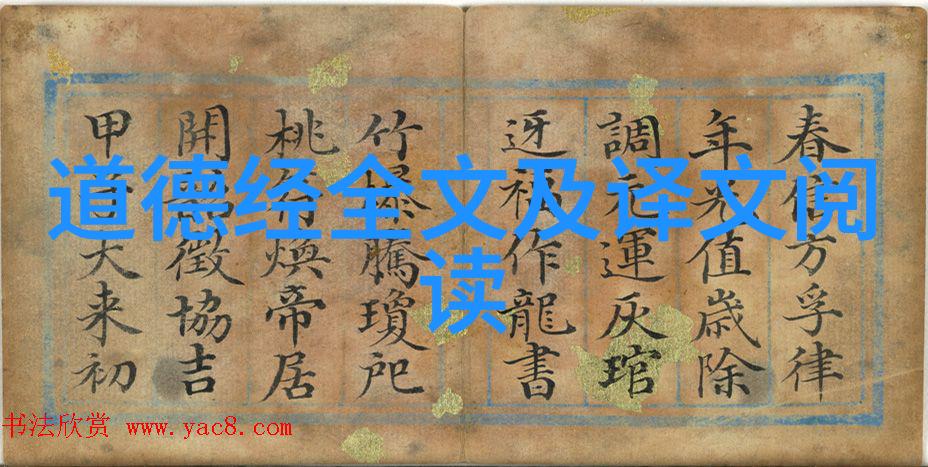 道德经全文及译文阅
读
春信方孚律
年光值歲除
調元運灰琯
迓福作龍書
竹爆騰瓊
桃符煥帝居
開徵協吉
甲大来初
书法欣赏 www.yac8.com